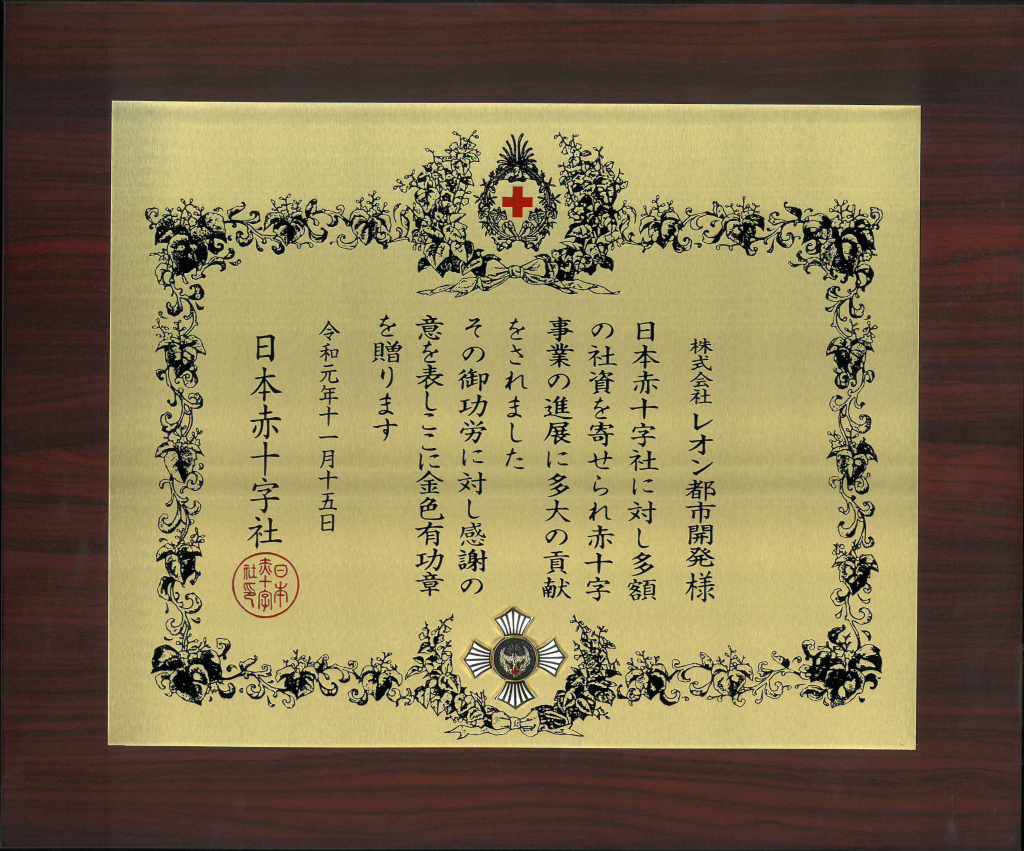 株式会社 レオン都市開発様
日本赤十字社に対し多額
の社資を寄せられ赤十字
事業の進展に多大の貢献
をされました
その御功労に対し感謝の
意を表しここに金色有功章
を贈ります
令和元年十一月十五日
日本赤十字社
日本
赤十字
社印